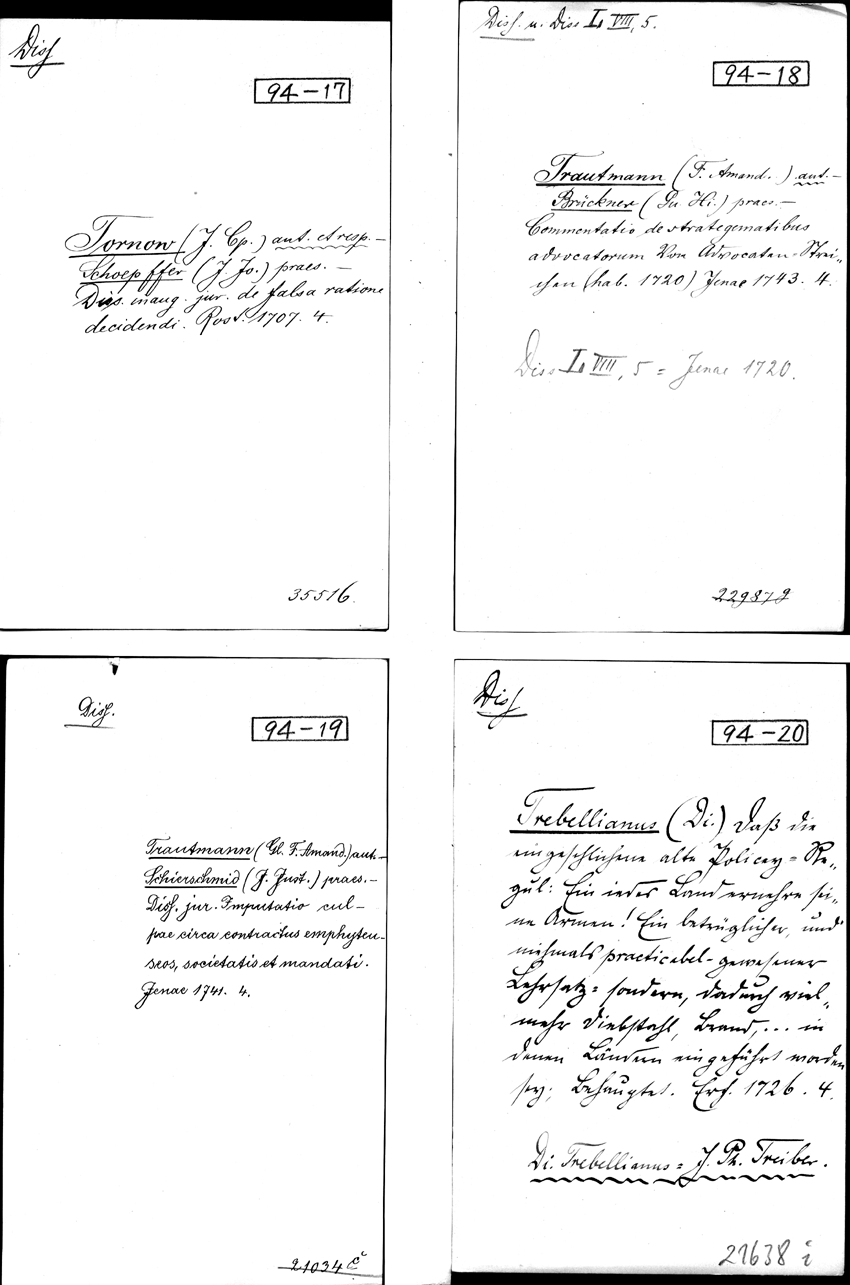 Diss
94-17
Tornow (J. Cp.) aut. et resp. –
Schoepffer (J. Jo.) praes. –
Diss. inaug. jur. de falsa ratione
decidendi. Rost. 1707. 4.
35516
Diss. u. Diss L VIII, 5.
94-18
Trautmann (F. Amand.) aut. –
Brückner (Gu. Hi.) praes. –
Commentatio de strategematibus
advocatorum Von Advocaten-Strei„
chen (hab. 1720) Jenae 1743. 4.
Diss L VIII, 5 = Jenae 1720.
22987
Diss.
94-19
Trautmann (Gl. F. Amand.) aut. –
Schierschmid (J. Just.) praes. –
Diss. jur. Imputatio cul-
pae circa contractus emphyteu-
seos, societatis et mandati.
Jenae 1741. 4.
21034
Diss
94-20
Trebellianus (Di.) Daß die
eingeschlichene alte Policey=Re„
gul: Ein iedes Land ernehre sei„
ne Armen! Ein betrüglicher, und
niehmals practicabel-gewesener
Lehrsatz= sondern, dadurch viel„
mehr Diebstahl, Brand, ... in
denen Ländern eingeführt worden
sey; Behauptet. Erf. 1726. 4.
Di. Trebellianus = J. Ph. Treiber.
21638 i